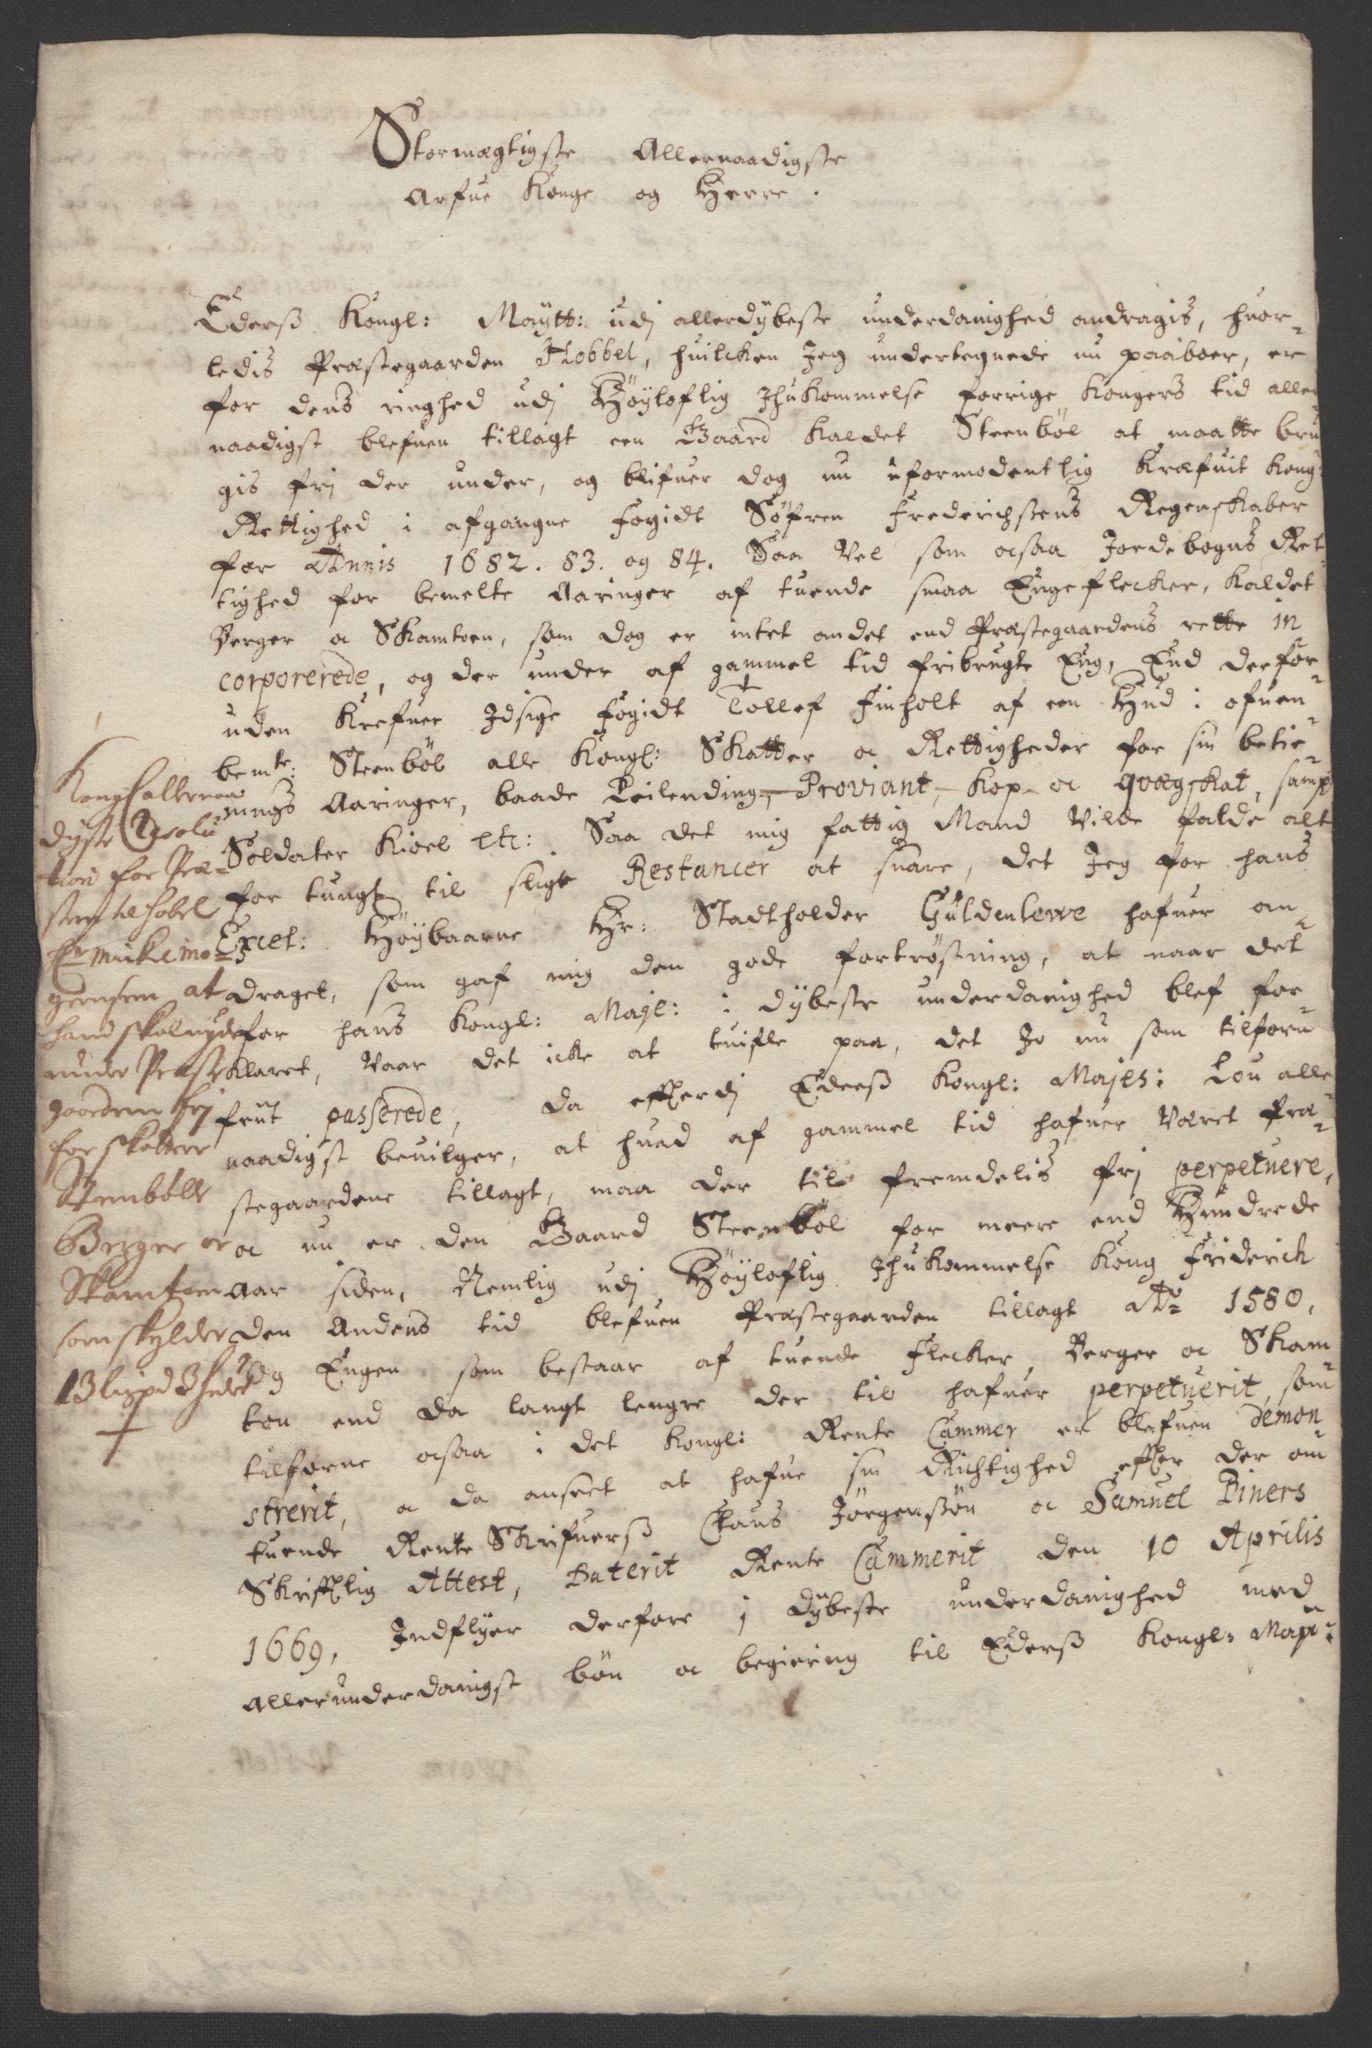 Stormægtigste Allernaadigste
Arfue Konge og Herre.
Ederß Kongl: Maÿtt: udj allerdÿbeste underdanighed andragis, huor-
ledis Præstegaarden Hobbel, huilcken Jeg undertegnede nu paaboer, er
for dens ringhed udj Höÿloflig Ihukommelse forrige Kongers tid aller
naadigst blefuen tillagt een Gaard kaldet Steenböl at maatte bru
gis frj der under, og blifuer dog nu uformodentlig Kræfuit Kong:
Rettighed i afgangne Fogidt Söfren Frederichsens Regenskaber
for Annis 1682. 83. og 84. Saa vel som ocsaa Jordebogens Ret
tighed for bemelte Aaringer af tuende smaa Engeflecker, kaldet
Berger oc Skamtoen, som dog er intet andet end Præstegaardens rette in
corporerede, og der under af gammel tid fribrugte Eng, End derfor-
uden Krefuer Idsige Fogidt Tollef Finholt af een Hud i ofuen-
bemte: Steenböl alle Kongl: Skatter oc Rettigheder for sin betie-
nings Aaringer, baade Leilending-, Proviant-, Kop- oc qvægskat, sampt
Soldater Kioel etc: Saa det mig fattig Mand vilde falde alt
for tungt til sligt Restancer at suare, det Jeg for hans
Excel: Höÿbaarne Hr: Stadtholder Güldenlewe hafuer an-
draget, som gaf mig den gode fortröstning, at naar det
for hans Kongl: Maje: i dÿbeste underdanighed blef for-
klaret, vaar det icke at tuifle paa, det Jo nu som tilforn
frut passerede, da efftterdj Ederß Kongl: Majes: Lou aller
naadigst beuilger, at huad af gammel tid hafuer været Præ-
stegaardene tillagt, maa der til fremdelis frj perpetuere,
oc nu er den Gaard Steenböl for meere end Hundrede
aar siden, Nemlig udj Höÿloflig Ihukommelse Kong Friderich
den Andens tid blefuen Præstegaarden tillagt Ao 1580,
og Engen som bestaar af tuende Flecker, Berger oc Skam
ton end da langt lengre der til hafuer perpetuerit, som
tilforne ocsaa i det Kongl: Rente Cammer er blefuen demon
strerit, oc da anseet at hafue sin Richtighed effter der om
tuende Rente Skrifuerß Claus Jörgenßön oc Samuel Biners
Skrifftlig Attest, Daterit Rente Cammerit den 10 Aprilis
1669, Indflÿer derfore i dÿbeste underdanighed med
allerunderdanigst bön oc begiering til Ederß Kongl: Maje:
Kongl allernaa
digste Resolu
tion for Præ-
sten til Hobel
Er mickemo-
gensen at
hand skal nyde
under Præste
gaarden frj
for skatter
Stenböll
Berger oc
Skamtoen
som skylder
13 lispd 3 huder